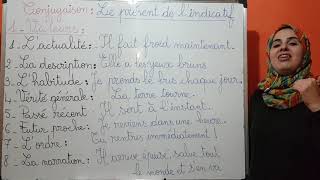 Conjugaison : Le présent de l'indicatif
1 - Valeurs :
1 - L'actualité : Il fait froid maintenant.
2 - La description : Elle a les yeux bruns
3 - L'habitude : Je prends le bus chaque jour.
4 - Vérité générale : La terre tourne.
5 - Passé récent : Il sort à l'instant.
6 - Futur proche : Je reviens dans une heure.
7 - L'ordre : Tu rentres immédiatement !
8 - La narration : Il arrive, épuisé, salue tout
le monde et s'en va